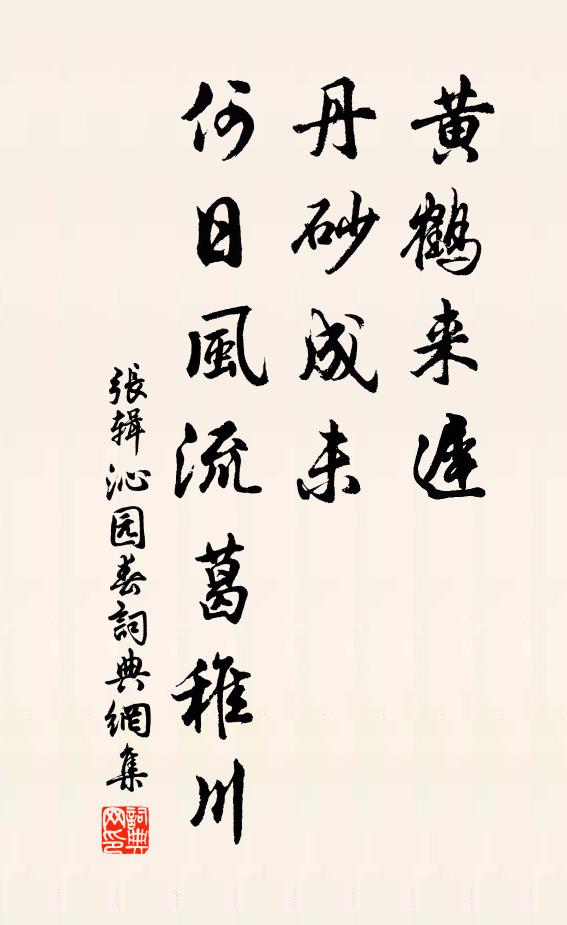 黄鶴来遲
丹砂成未
何日風流葛稚川
張辑沁园春詞典網集
詞典
网印